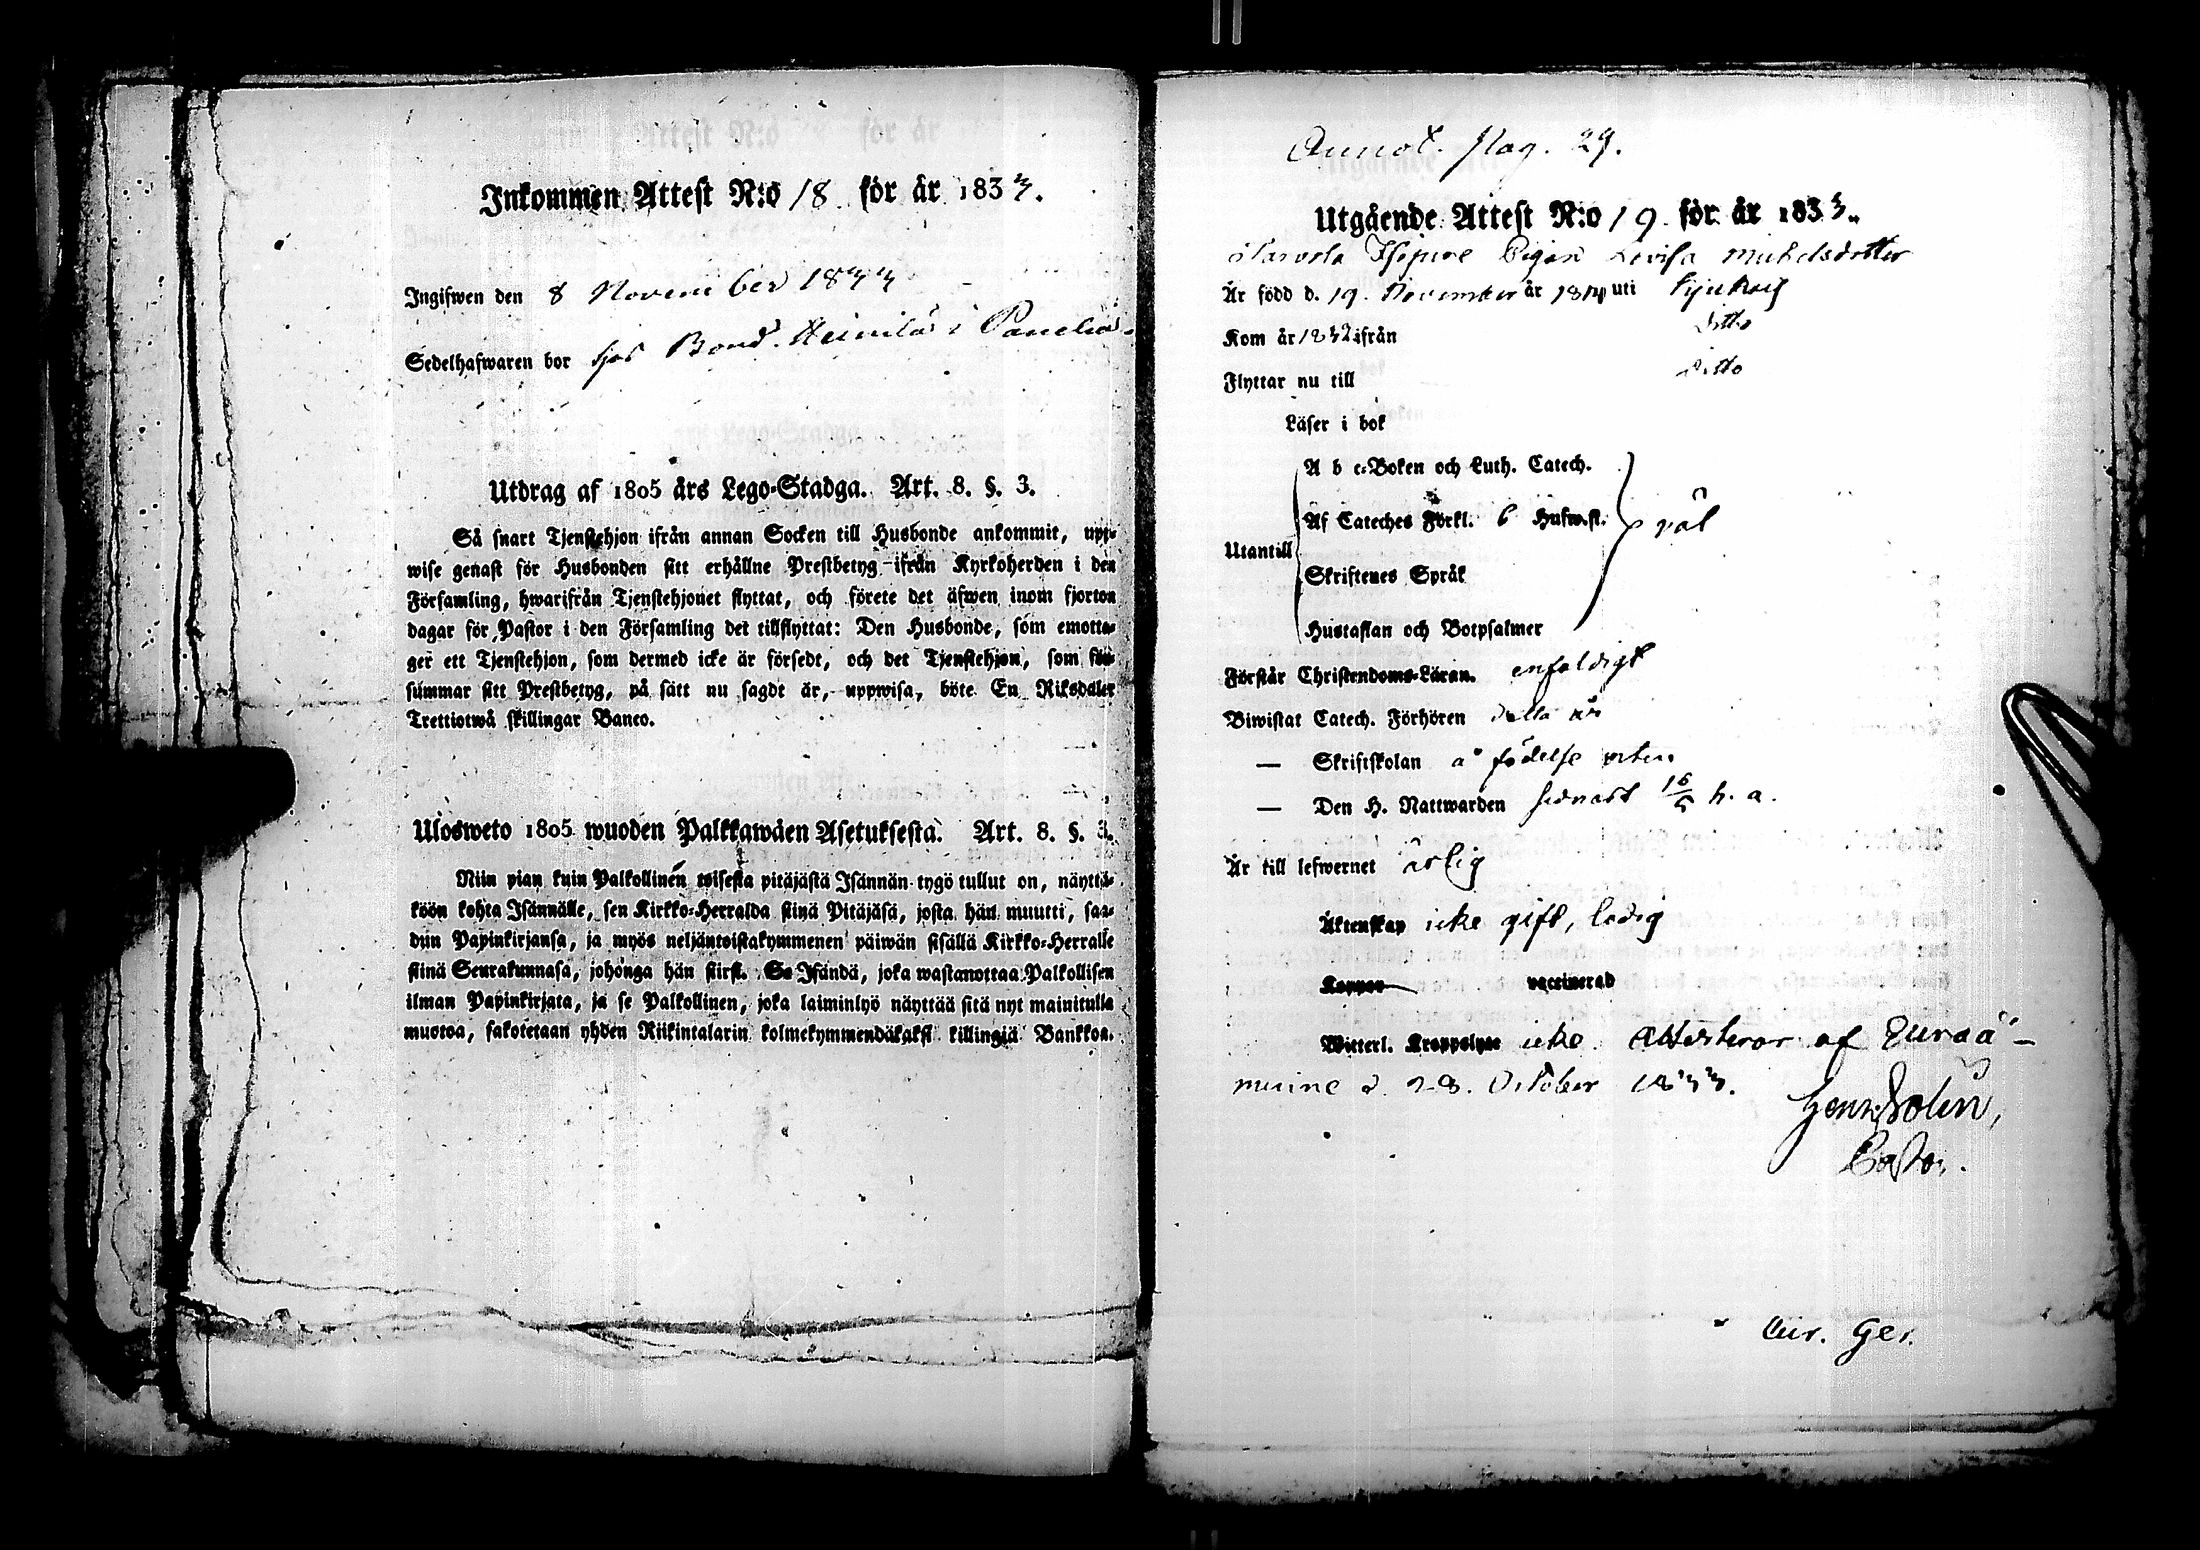 Inkommen Attest N:o 18 för år 1833.
Ingifwen den 8 November 1833
Sedelhafwaren bor hos Bond. Heinilä i Panelia.
Utdrag af 1805 års Lego-Stadga. Art. 8. §. 3.
Så snart Tjenstehjon ifrån annan Socken till Husbonde ankommit, upp-
wise genast för Husbonden sitt erhållne Prestbetyg ifrån Kyrkoherden i den
Församling, hwarifrån Tjenstehjonet flyttat, och förete det äfwen inom fjorton
dagar för Pastor i den Församling det tillflyttat: Den Husbonde, som emotta-
ger ett Tjenstehjon, som dermed icke är försedt, och det Tjenstehjon, som för-
summar sitt Prestbetyg, på sätt nu sagdt är, uppwisa, böte En Riksdaler
Trettiotwå skillingar Banco.
Ulosweto 1805 wuoden Palkkawäen Asetuksesta. Art. 8. §. 3.
Niin pian kuin Palkollinen toisesta pitäjästä Isännän tygö tullut on, näyttä-
köön kohta Isännälle, sen Kirkko-Herralda siinä Pitäjäsä, josta hän muutti, saa-
dun Papinkirjansa, ja myös neljäntoistakymmenen päiwän sisällä Kirkko-Herralle
siinä Seurakunnasa, johonga hän siirst. Se Isändä, joka wastanottaa Palkollisen
ilman Papinkirjata, ja se Palkollinen, joka laiminlyö näyttää sitä nyt mainitulla
muotoa, sakotetaan yhden Riikintalarin kolmekymmendäkaksi killingiä Bankkoa.
Annot. Pag. 29.
Utgående Attest N:o 19 för år 1833.
Pigan Lovisa Michelsdotter
Är född d. 19 November år uti
Kom år 1832 ifrån Ditto
Flyttar nu till Ditto
Läser i bok
A b c-Boken och Luth. Catech.
Af Cateches Förkl. 6 Hufwst. väl
Utantill
Skriftenes Språk
Hustaflan och Botpsalmer
Förstår Christendoms-Läran. enfaldigt
Biwistat Catech. Förhören detta år
— Skriftskolan å födelse orten
— Den H. Nattwarden sednast h. a.
Är till lefwernet ärlig
Äktenskap icke gift, ledig
Koppor vaccinerad
Witterl. Kroppslyte icke. Attesterar af Euraå-
minne d. 28. October 1833.
Henr. Solin,
Pastor.
Cur. Ger.